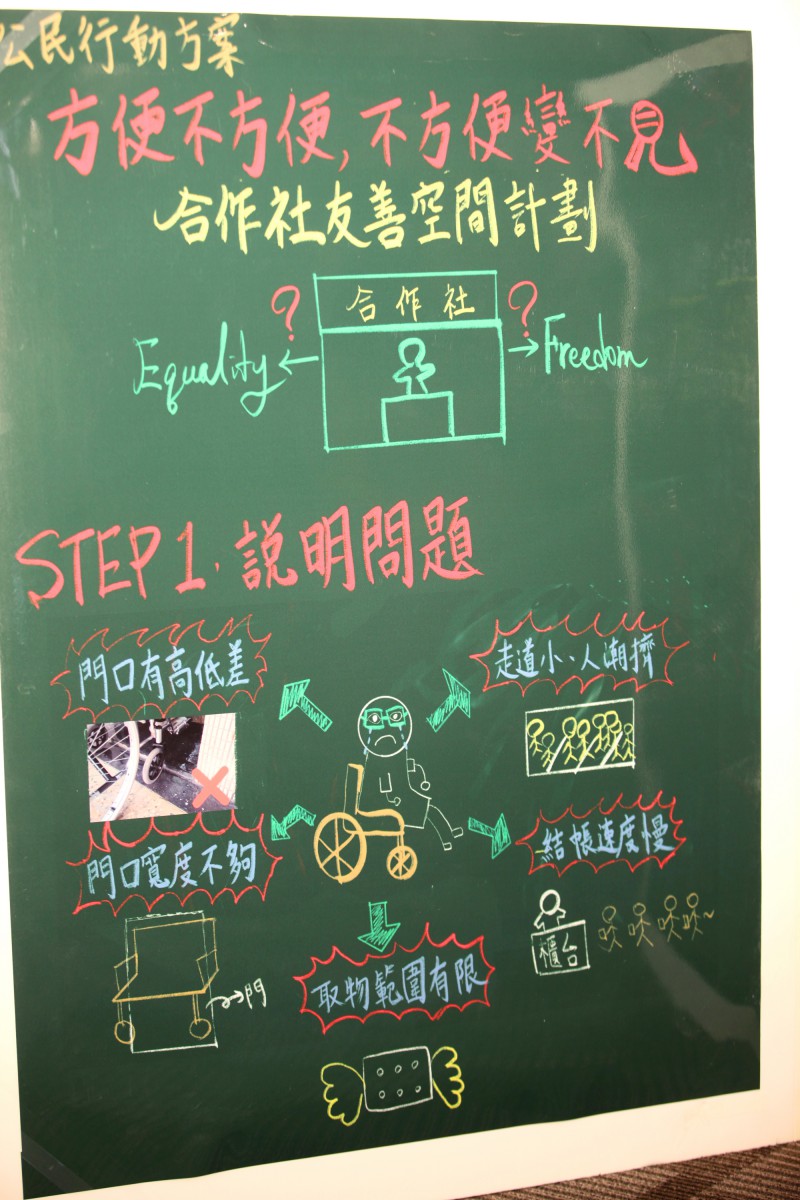 公民行動方案
方便不方便,不方便變不見
合作社友善空間計劃
合作社
?
?
Equality
Freedom
STEP 1. 說明問題
門口有高低差
走道小、人潮擠
門口寬度不夠
結帳速度慢
櫃台
門
取物範圍有限